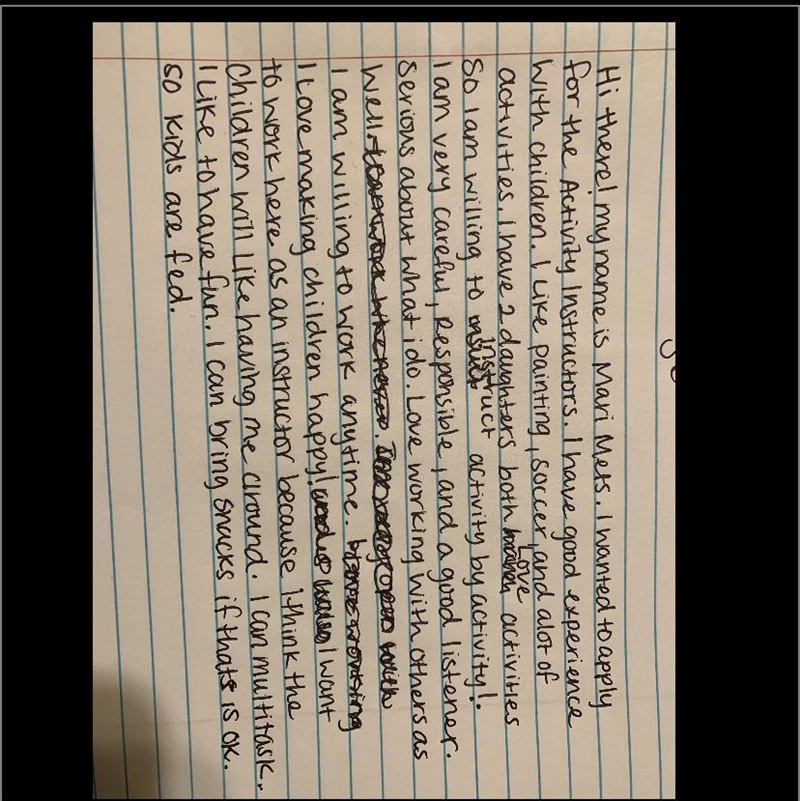 Hi there! my name is Mari Mets. I wanted to apply
for the Activity Instructors. I have good experience
with children. I like painting, soccer, and alot of
activities. I have 2 daughters both Love activities
So I am willing to instruct activity by activity!.
I am very careful, Responsible, and a good listener.
Serious about what i do. Love working with others as
well.
I am willing to work anytime.
I Love making children happy! I want
to work here as an instructor because I think the
Children will like having me around. I can multitask.
I Like to have fun. I can bring snacks if thats is ok.
so kids are fed.